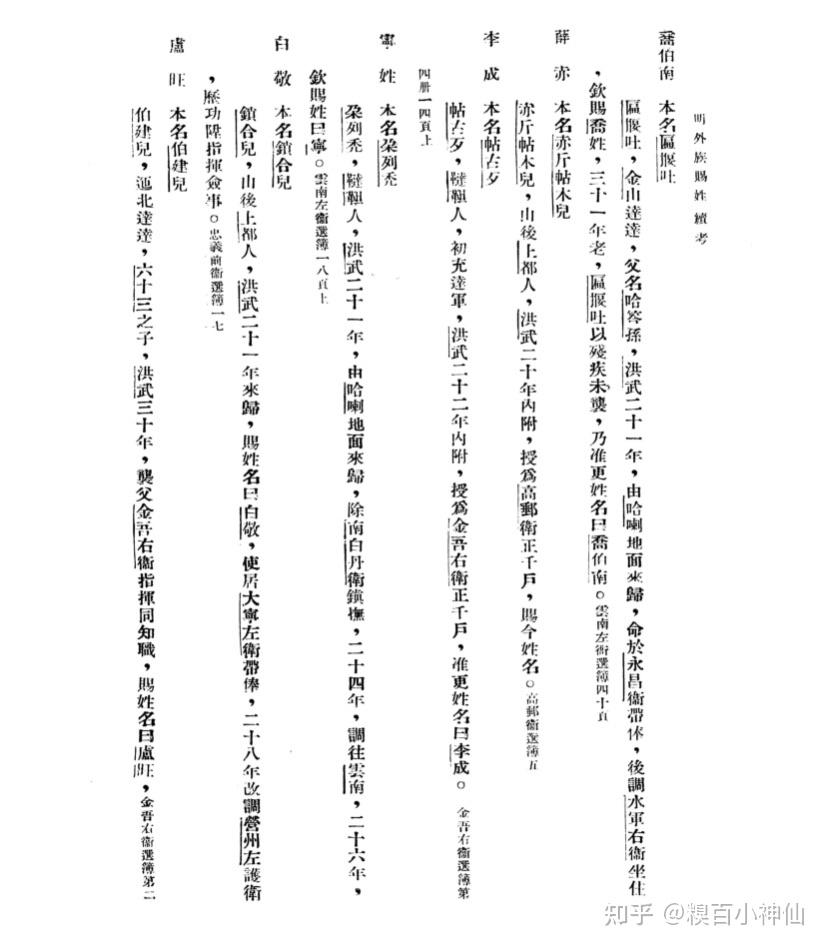 明外族賜姓續考
喬伯南　本名匾堰吐
匾堰吐，金山達達，父名哈答孫，洪武二十一年，由哈喇地面來歸，命於永昌衞帶俸，後調水軍右衞坐住
，欽賜喬姓，三十一年老，匾堰吐以殘疾未襲，乃准更姓名曰喬伯南。雲南左衞選簿四十頁
薛赤　本名赤斤帖木兒
赤斤帖木兒，山後上都人，洪武二十年內附，授爲高郵衞正千戶，賜今姓名。高郵衞選簿五
李成　本名帖古歹
帖古歹，韃靼人，初充達軍，洪武二十二年內附，授爲金吾右衞正千戶，准更姓名曰李成。金吾右衞選簿第
四册一四頁上
寧姓　本名朶列禿
朶列禿，韃靼人，洪武二十一年，由哈喇地面來歸，除南白丹衞鎭撫，二十四年，調往雲南，二十六年，
欽賜姓曰寧。雲南左衞選簿一八頁上
白敬　本名鎖合兒
鎖合兒，山後上都人，洪武二十一年來歸，賜姓名曰白敬，使居大寧左衞帶俸，二十八年改調營州左護衞
，歷功陞指揮僉事。忠義前衞選簿一七
盧旺　本名伯建兒
伯建兒，迤北達達，六十三之子，洪武三十年，襲父金吾右衞指揮同知職，賜姓名曰盧旺，金吾右衞選簿第二
知乎 @糗百小神仙